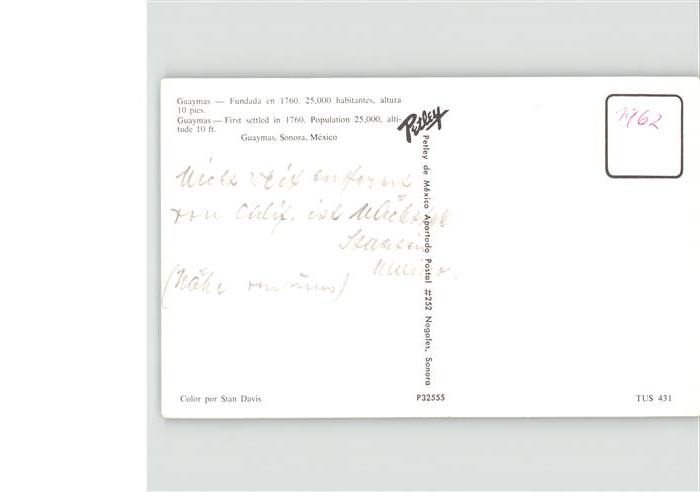 Guaymas — Fundada en 1760. 25,000 habitantes, altura
10 pies.
Guaymas — First settled in 1760. Population 25,000, alti-
tude 10 ft.
Guaymas, Sonora, México
Petley
Petley de México Apartado Postal #252 Nogales, Sonora
1962
Nicht weit entfernt
von Calif. ist
(Nähe von uns)
Color por Stan Davis
P32555
TUS 431